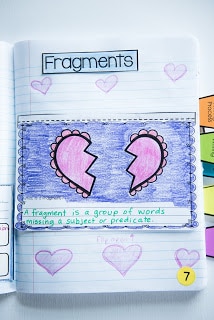 Fragments
A fragment is a group of words
missing a subject or predicate.
7